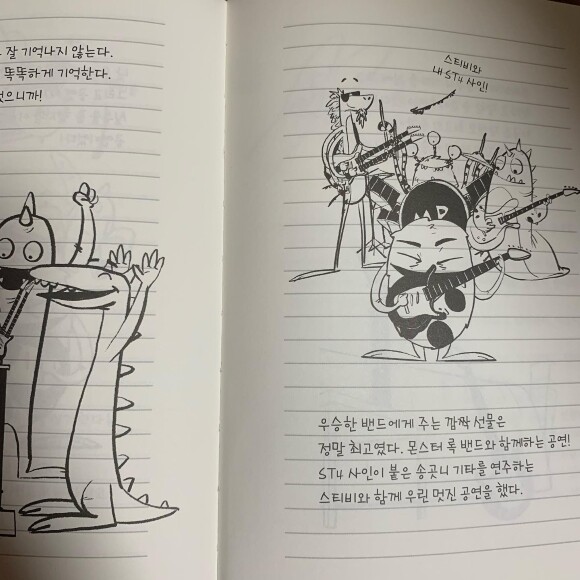 잘 기억나지 않는다.
똑똑하게 기억한다.
으니까!
스티비와
내 ST4 사인!
우승한 밴드에게 주는 깜짝 선물은
정말 최고였다. 몬스터 록 밴드와 함께하는 공연!
ST4 사인이 붙은 송곳니 기타를 연주하는
스티비와 함께 우린 멋진 공연을 했다.